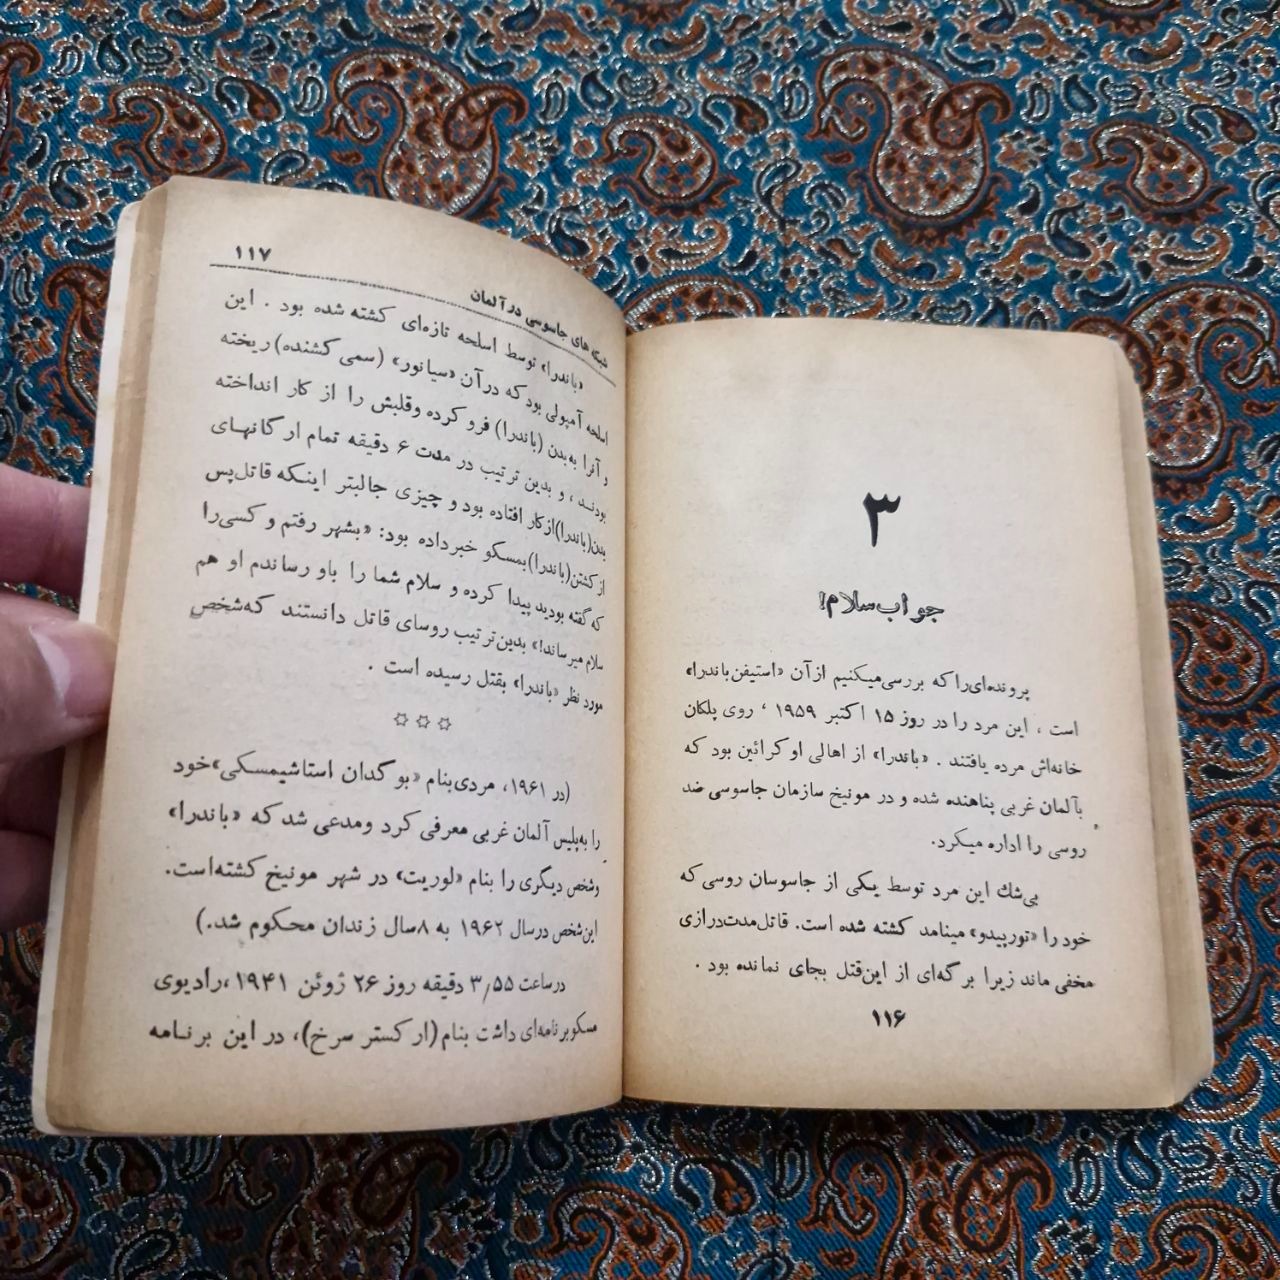 ۳
جواب سلام!
پرونده‌ای را که بررسی میکنیم از آن «استیفن باندرا»
است ، این مرد را در روز ۱۵ اکتبر ۱۹۵۹ ، روی پلکان
خانه‌اش مرده یافتند . «باندرا» از اهالی اوکرائین بود که
بآلمان غربی پناهنده شده و در مونیخ سازمان جاسوسی ضد
روسی را اداره میکرد.
بی‌شك این مرد توسط یکی از جاسوسان روسی که
خود را «تورپیدو» مینامد کشته شده است. قاتل مدت درازی
مخفی ماند زیرا برگه‌ای از این قتل بجای نمانده بود .
۱۱۶
شبکه های جاسوسی در آلمان
۱۱۷
«باندرا» توسط اسلحه تازه‌ای کشته شده بود . این
اسلحه آمپولی بود که در آن «سیانور» (سمی کشنده) ریخته
و آنرا به بدن (باندرا) فرو کرده وقلبش را از کار انداخته
بودند ، و بدین ترتیب در مدت ۶ دقیقه تمام ارگانهای
بدن(باندرا)از کار افتاده بود و چیزی جالبتر اینکه قاتل پس
از کشتن(باندرا)بمسکو خبرداده بود: «بشهر رفتم و کسی را
که گفته بودید پیدا کرده و سلام شما را باو رساندم او هم
سلام میرساند!» بدین ترتیب روسای قاتل دانستند که شخص
مورد نظر «باندرا» بقتل رسیده است .
(در ۱۹۶۱، مردی بنام «بوگدان استاشیمسکی»خود
را به پلیس آلمان غربی معرفی کرد ومدعی شد که «باندرا»
وشخص دیگری را بنام «لوریت» در شهر مونیخ کشته است.
این شخص درسال ۱۹۶۲ به ۸ سال زندان محکوم شد.)
درساعت ۳٫۵۵ دقیقه روز ۲۶ ژوئن ۱۹۴۱ ،رادیوی
مسکو برنامه‌ای داشت بنام (ارکستر سرخ)، در این برنامه